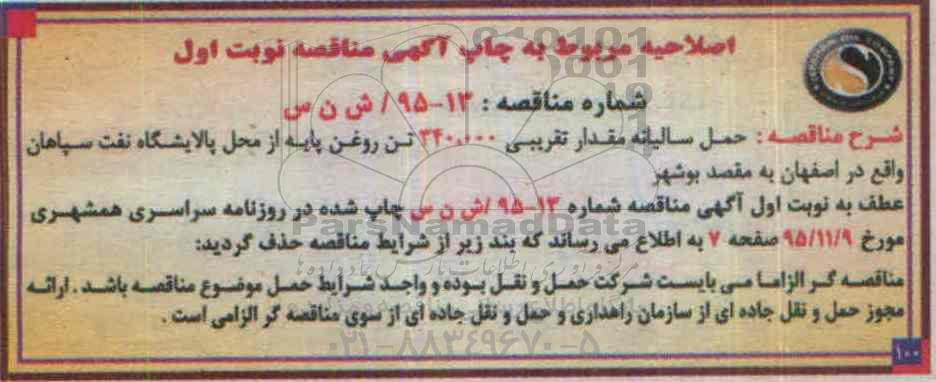 اصلاحیه مربوط به چاپ آگهی مناقصه نوبت اول
شماره مناقصه : ۱۳-۹۵ / ش ن س
شرح مناقصه : حمل سالیانه مقدار تقریبی ۳۴۰.۰۰۰ تن روغن پایه از محل پالایشگاه نفت سپاهان
واقع در اصفهان به مقصد بوشهر
عطف به نوبت اول آگهی مناقصه شماره ۱۳-۹۵ /ش ن س چاپ شده در روزنامه سراسری همشهری
مورخ ۹۵/۱۱/۹ صفحه ۷ به اطلاع می رساند که بند زیر از شرایط مناقصه حذف گردید:
مناقصه گر الزاما می بایست شرکت حمل و نقل بوده و واجد شرایط حمل موضوع مناقصه باشد . ارائه
مجوز حمل و نقل جاده ای از سازمان راهداری و حمل و نقل جاده ای از سوی مناقصه گر الزامی است .
۱۰۰
ParsNamadData
۰۲۱-۸۸۳۴۹۶۷۰-۵